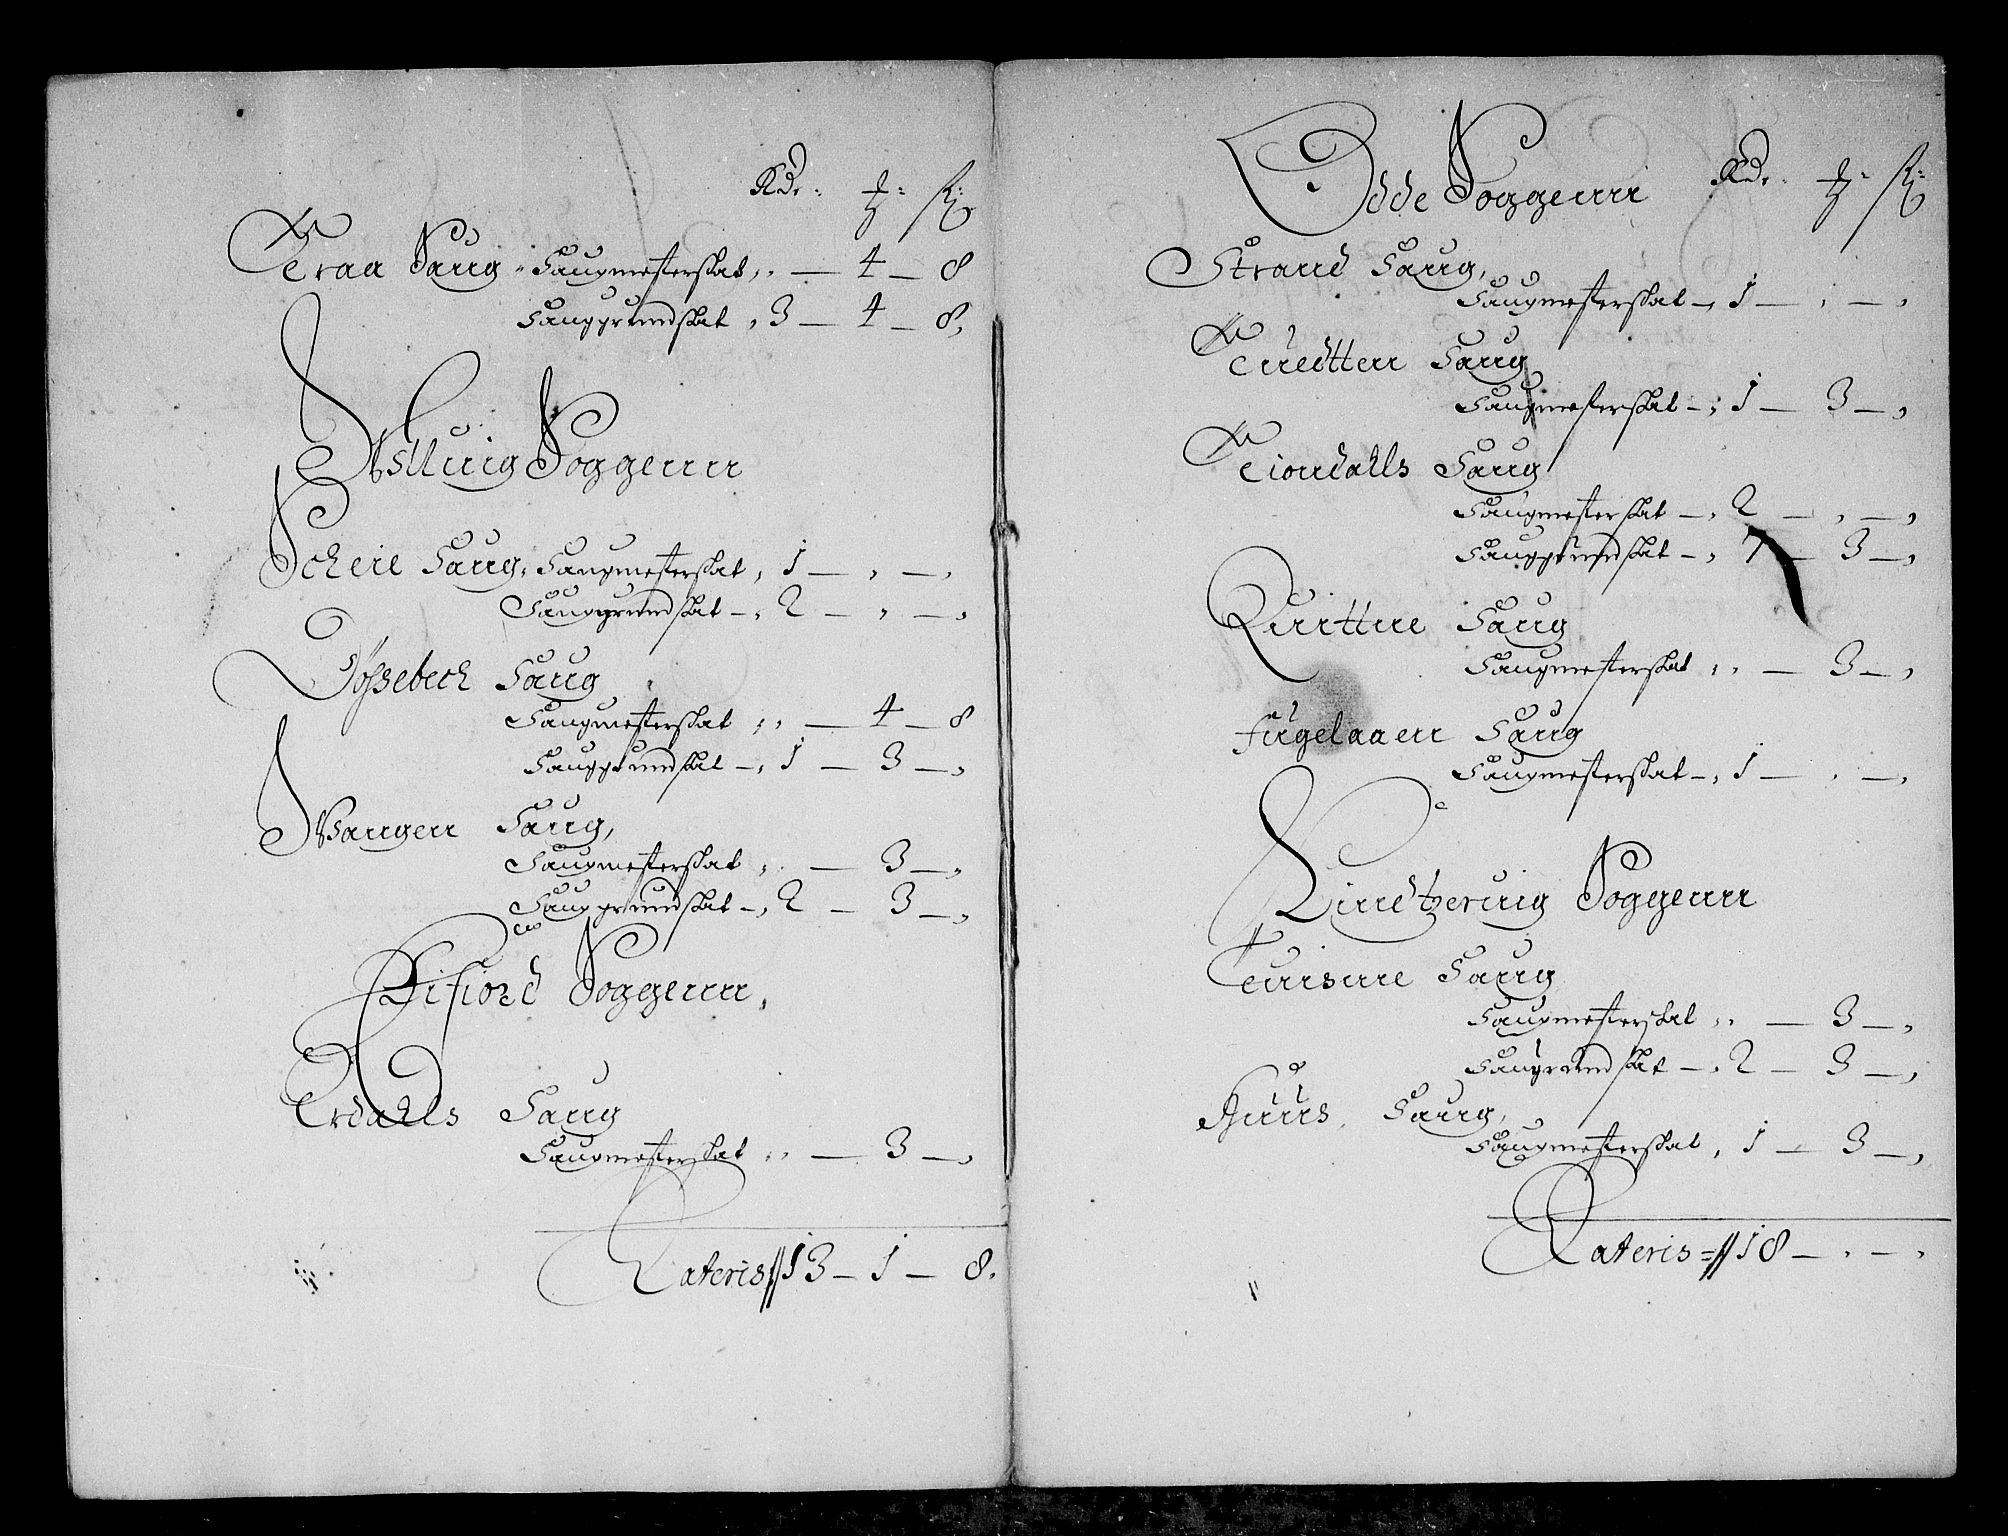 Rdr. ƺ ß
Traa Saug Saugmesterskat „ — 4 — 8
Sauggrundskat „ 3 — 4 — 8.
Asluig Soggenn
Scheie Saug, Saugmesterskat, 1 — „ — „
Sauggrundskat —, 2 — „ — „
Døssebech Saug
Saugmesterskat „ — 4 — 8
Sauggrundskat —, 1 — 3 — „
Wangen Saug,
Saugmesterskat „ — 3 — „
Sauggrundskat —, 2 — 3 — „
Eifiord Soggenn,
Erdahls Saug
Saugmesterskat „ — 3 — „
Lateris // 13 — 1 — 8.
Odde Soggenn Rdr. ƺ ß
Strand Saug,
Saugmesterskat —, 1 — „ — „
Tuedtten Saug
Saugmesterskat —, 1 — 3 — „
Tiondahls Saug
Saugmesterskat —, 2 — „ — „
Sauggrundskat —, 7 — 3 — „
Quittne Saug
Saugmesterskat „ — 3 — „
Fugelaaen Saug
Saugmesterskat —, 1 — „ — „
Kindtzeruig Soggenn
Tuisme Saug
Saugmesterskat „ — 3 — „
Saugrundskat —, 2 — 3 — „
Huus, Saug,
Saugmesterskat, 1 — 3 — „
Lateris = // 18 — „ — „